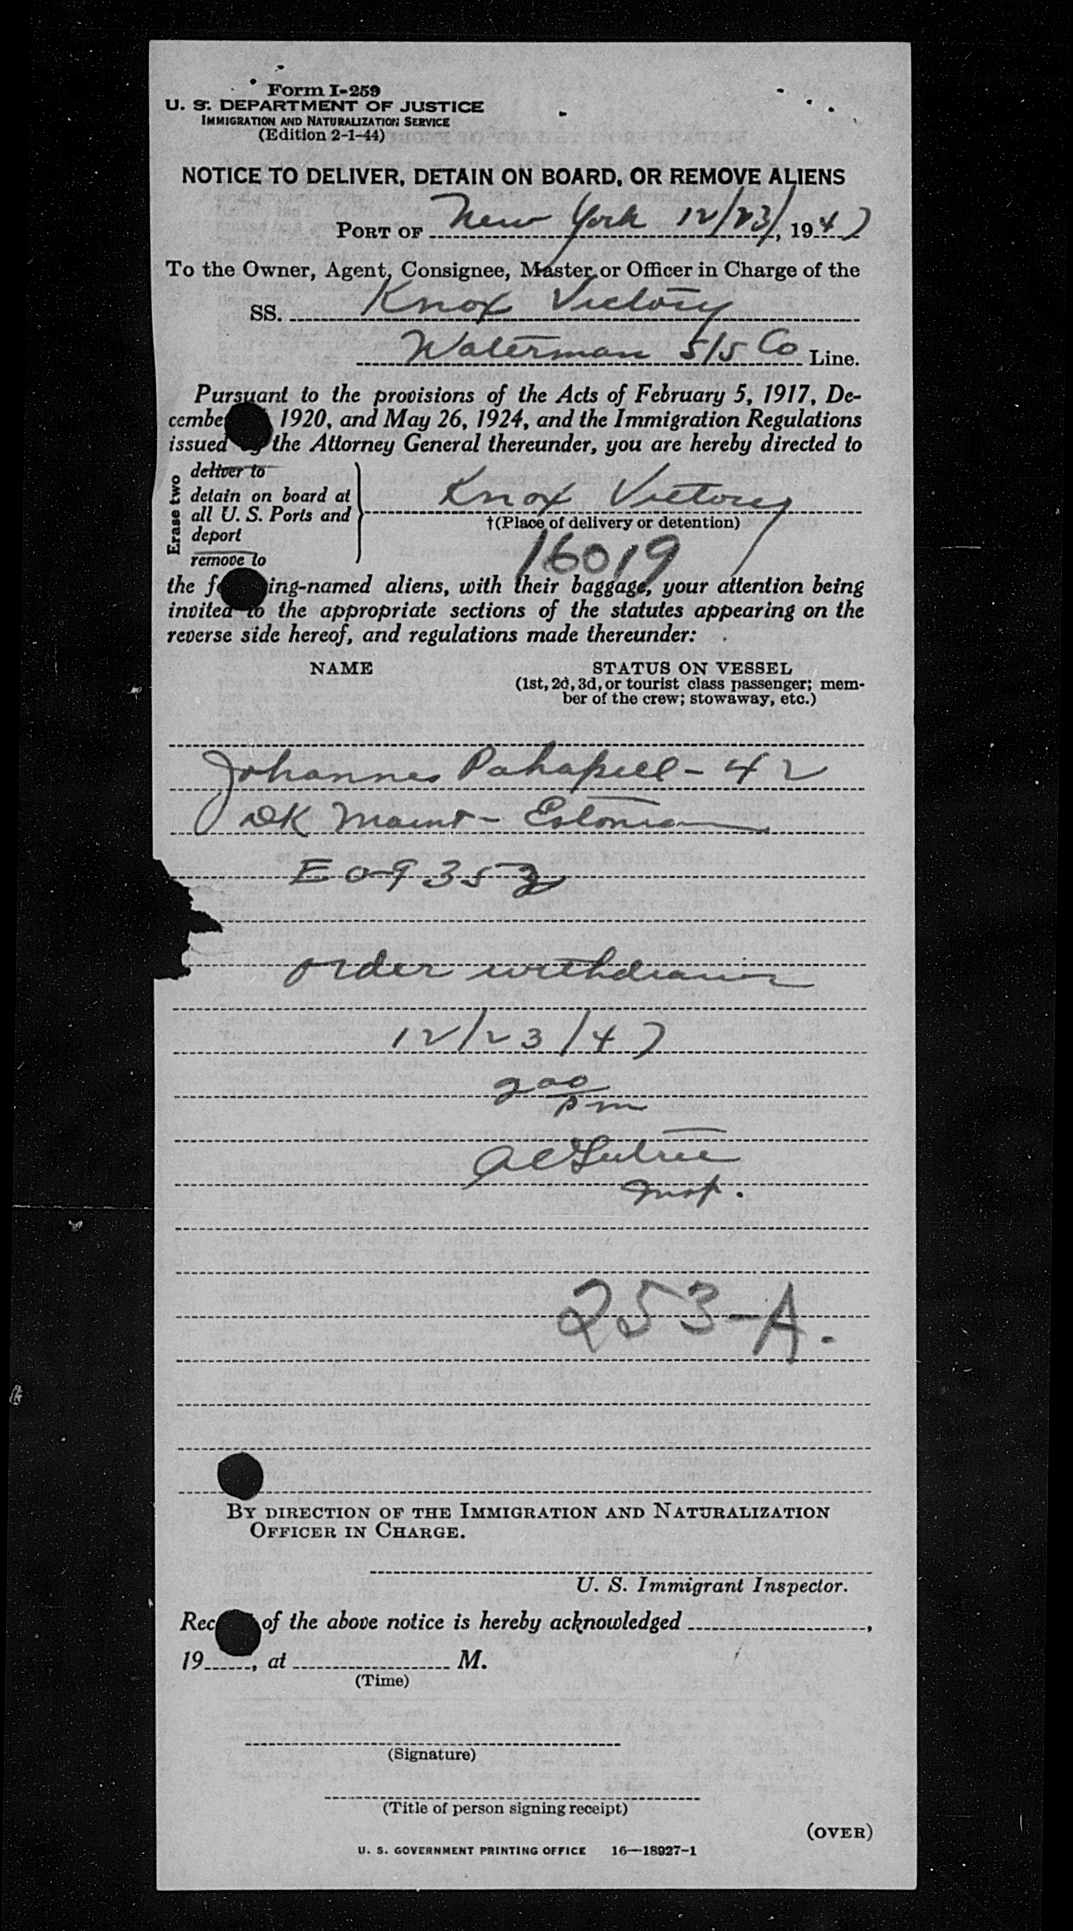 Form I-259
U. S. DEPARTMENT OF JUSTICE
IMMIGRATION AND NATURALIZATION SERVICE
(Edition 2-1-44)
NOTICE TO DELIVER, DETAIN ON BOARD, OR REMOVE ALIENS
PORT OF New York 12/23/, 1947
To the Owner, Agent, Consignee, Master or Officer in Charge of the
SS. Knox Victory
Waterman S/S Co Line.
Pursuant to the provisions of the Acts of February 5, 1917, De-
cembe 1920, and May 26, 1924, and the Immigration Regulations
issued by the Attorney General thereunder, you are hereby directed to
Erase two
deliver to
detain on board at
all U. S. Ports and
deport
remove to
Knox Victory
†(Place of delivery or detention)
16019
the f ing-named aliens, with their baggage, your attention being
invited to the appropriate sections of the statutes appearing on the
reverse side hereof, and regulations made thereunder:
NAME STATUS ON VESSEL
(1st, 2d, 3d, or tourist class passenger; mem-
ber of the crew; stowaway, etc.)
Johannes Pahapill - 42
DK Maint - Estonian
E 09352
order withdrawn
12/23/47
2 00 pm
Insp.
253-A.
BY DIRECTION OF THE IMMIGRATION AND NATURALIZATION
OFFICER IN CHARGE.
U. S. Immigrant Inspector.
Rec of the above notice is hereby acknowledged ,
19 , at M.
(Time)
(Signature)
(Title of person signing receipt)
(OVER)
U. S. GOVERNMENT PRINTING OFFICE 16—18927-1